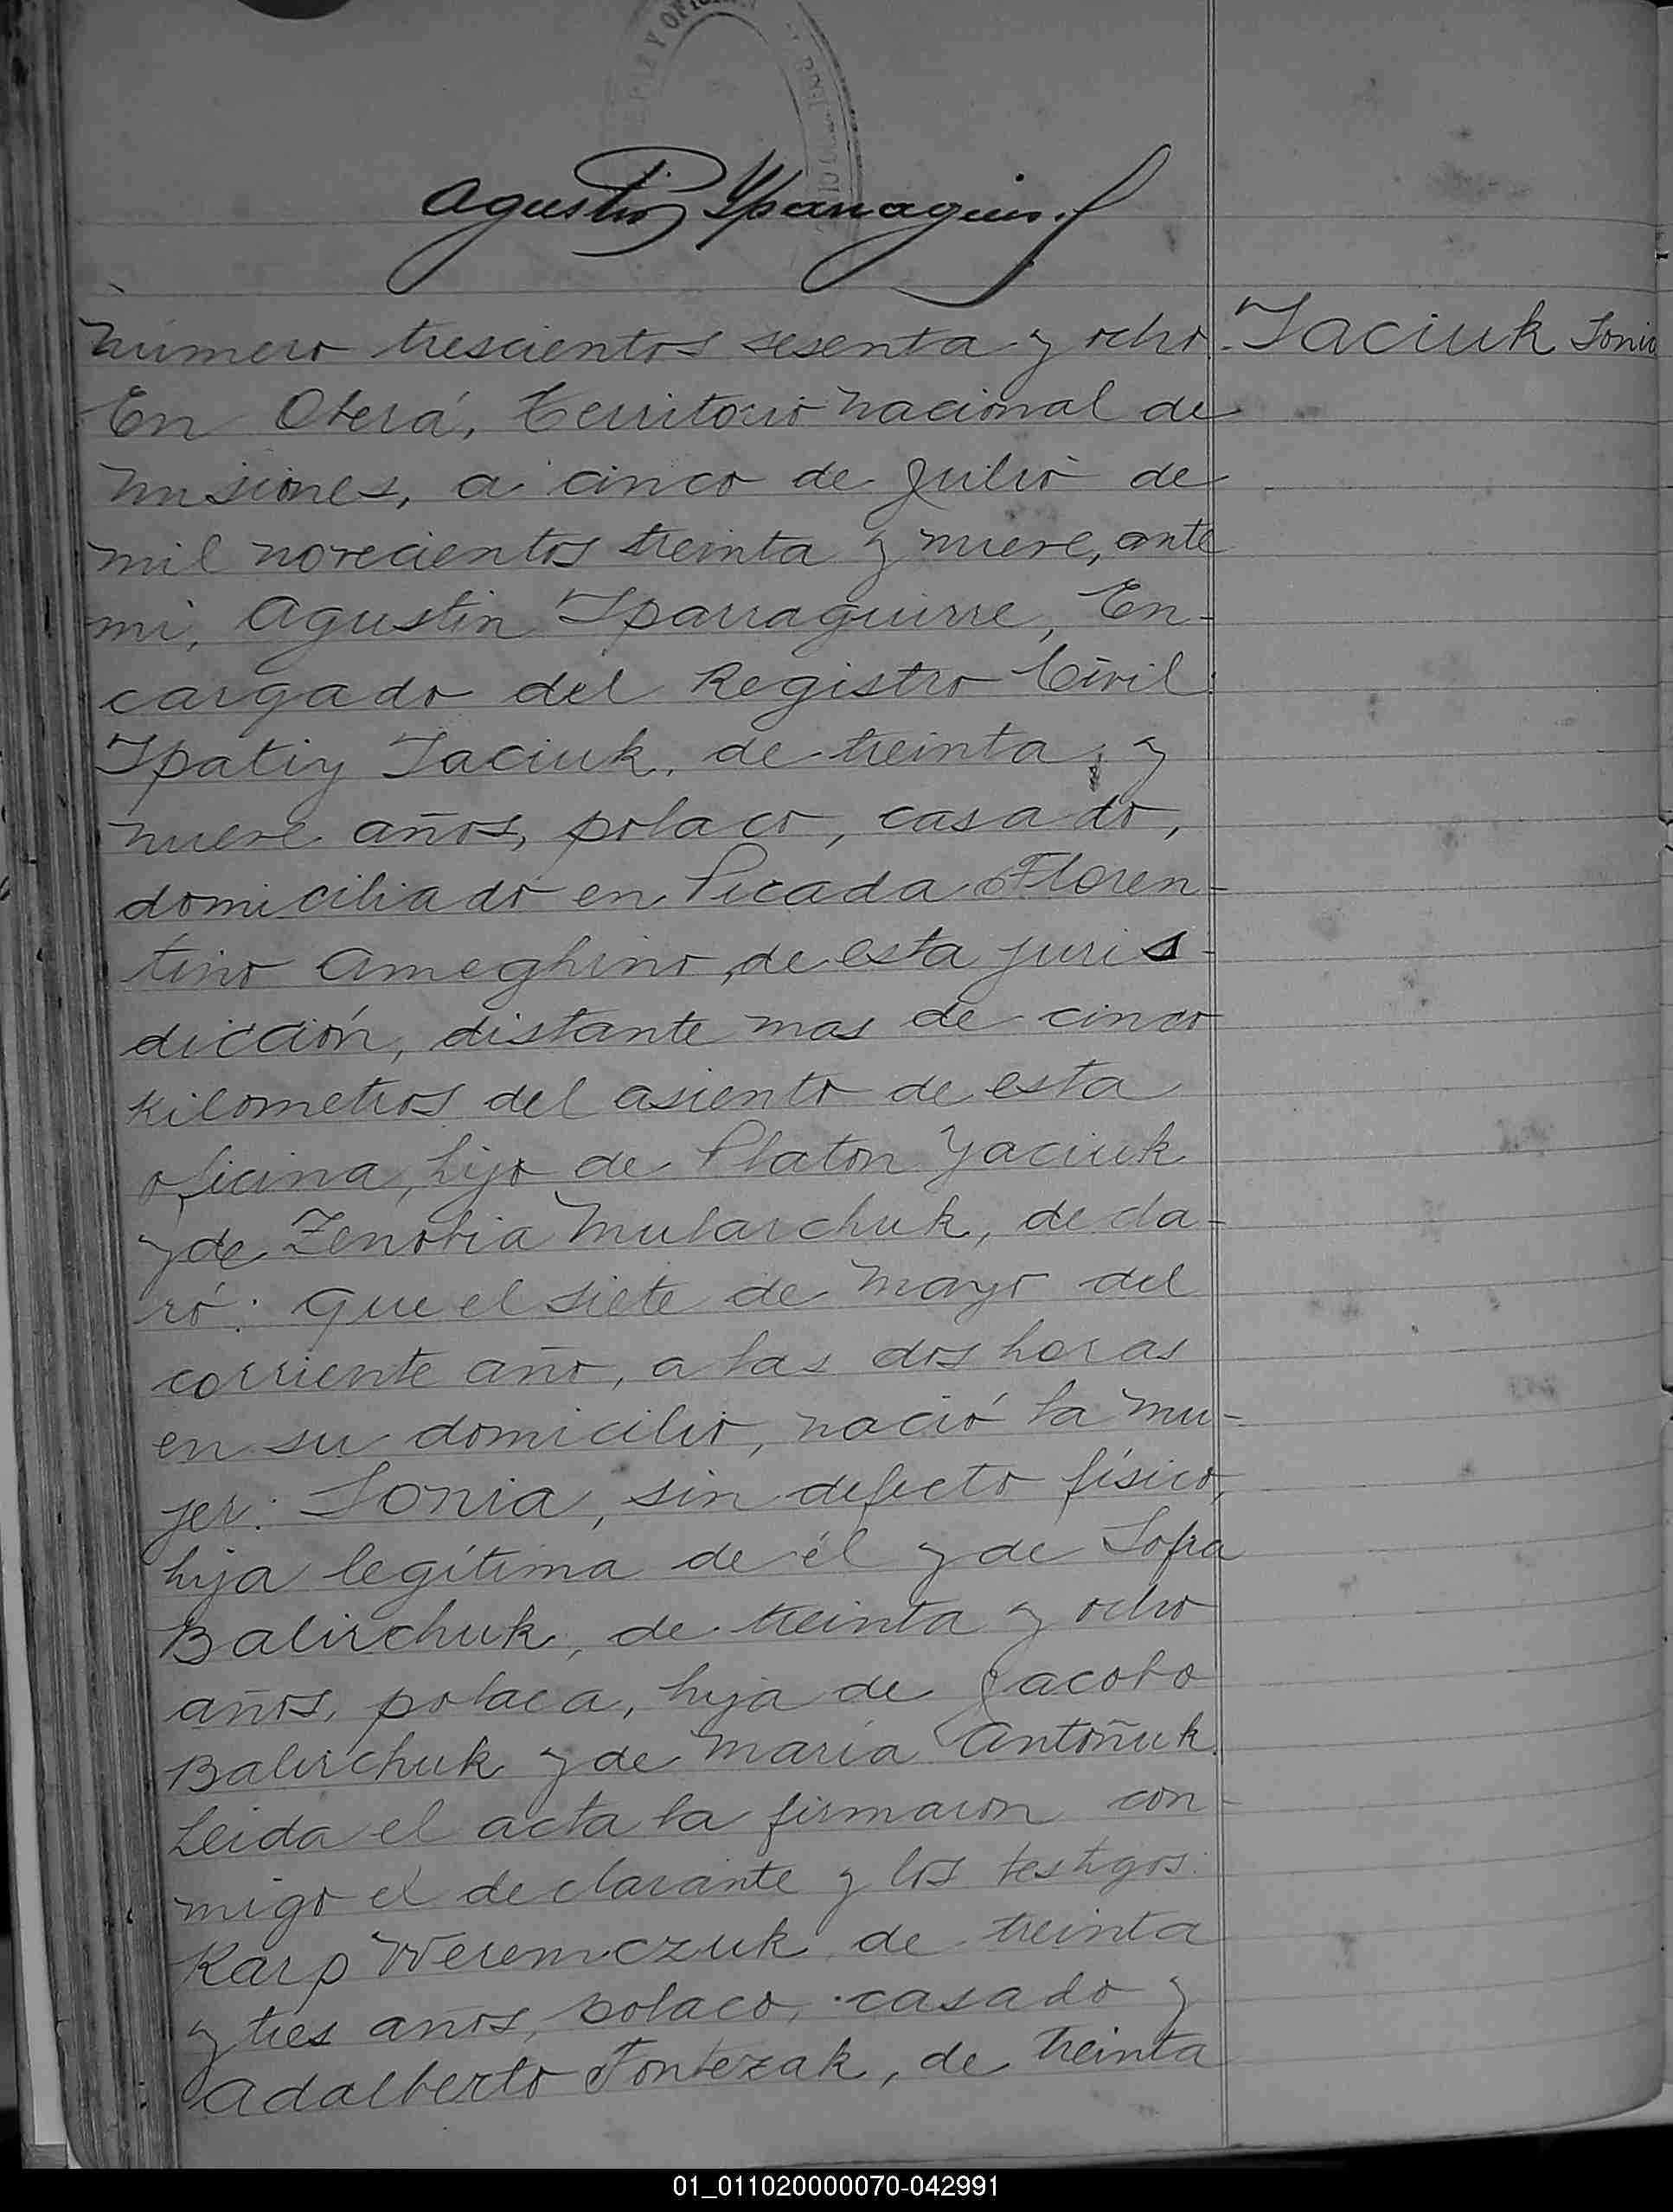 Agustin Yparraguirre
Número trescientos sesenta y ocho.
Iaciuk Sonia
En Oberá, Territorio Nacional de
Misiones, a cinco de Julio de
mil novecientos treinta y nueve, ante
mi, Agustin Iparraguirre, En-
cargado del Registro Civil:
Ipatiy Iaciuk, de treinta y
nueve años, polaco, casado,
domiciliado en Picada Floren-
tino Ameghino, de esta juris-
dicción, distante mas de cinco
kilometros del asiento de esta
oficina, hijo de Platon Yaciuk
y de Zenobia Mularchuk, decla-
ró: Que el siete de Mayo del
corriente año, a las dos horas
en su domicilio, nació la mu-
jer: Sonia, sin defecto físico,
hija legítima de él y de Sofia
Balirchuk, de treinta y ocho
años, polaca, hija de Jacobo
Balirchuk y de María Antoñuk.
Leida el acta la firmaron con-
migo el declarante y los testigos:
Karp Weremczuk de treinta
y tres años, polaco, casado y
Adalberto Fontezak, de treinta
01_011020000070-042991